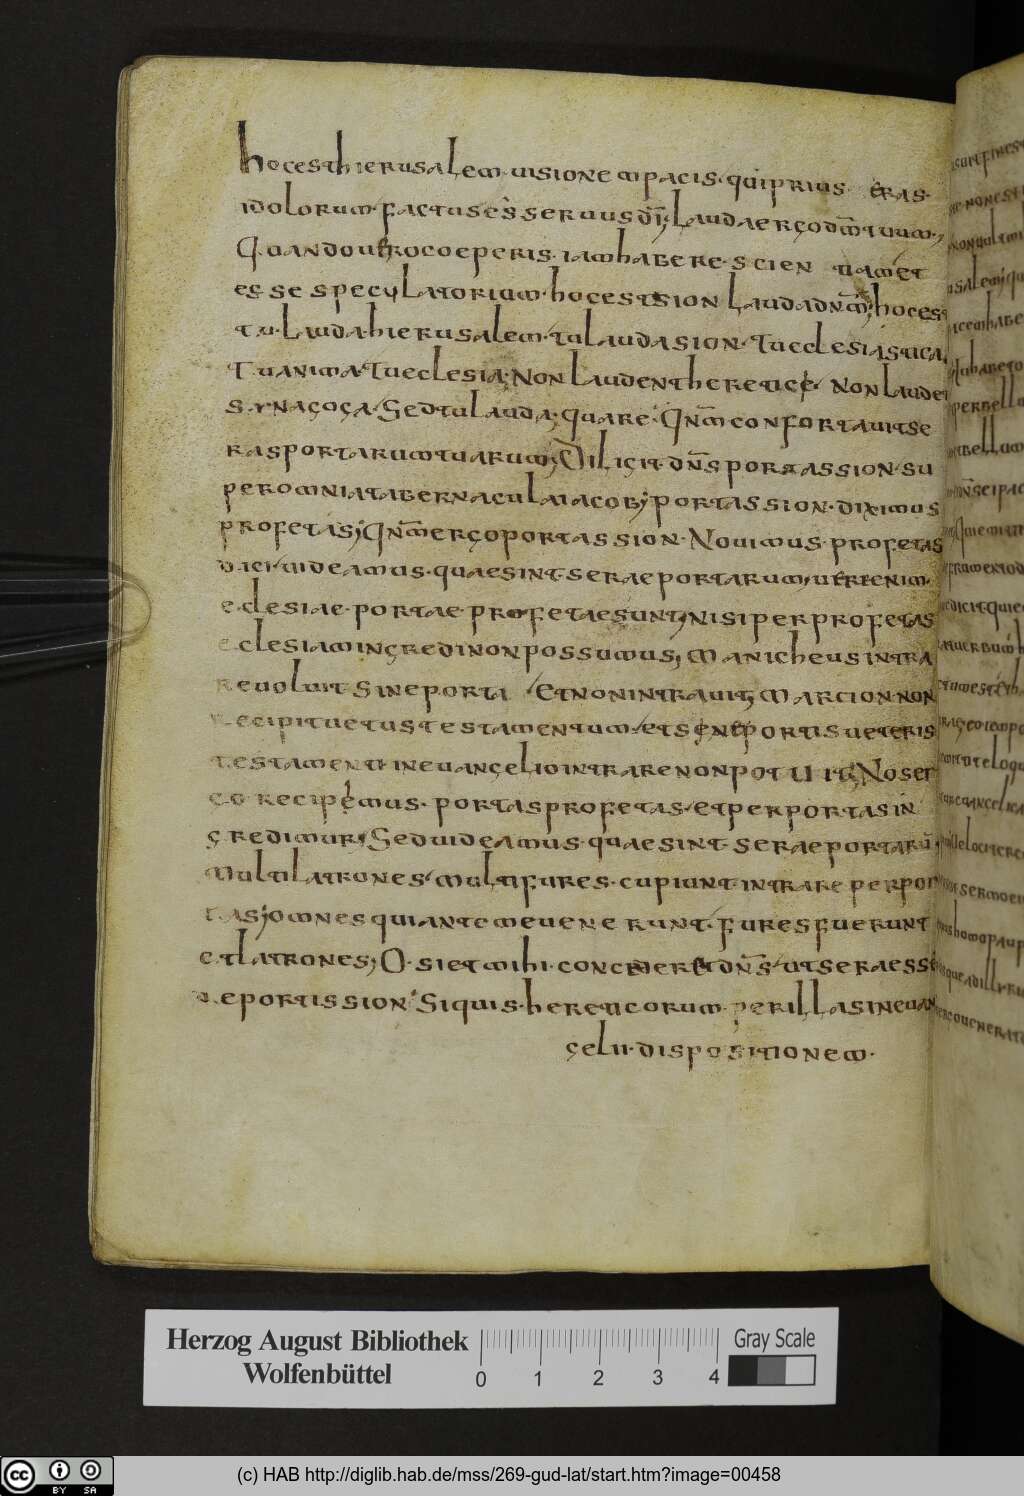 hoc est hierusalem uisionem pacis. qui prius eras.
idolorum. factus es seruus dī; Lauda ergo dm̄ tuum.,
Quando uero coeperis. iam habere. scien tiam et
esse speculatorium. hoc est sion Lauda dnm̄; hoc es
tu. Lauda. hierusalem. tu Lauda sion. Tu ecclesiastica
Tu anima. Tu ecclesia; Non laudent heretice. non laudet
synagoga. Sed tu lauda; quare. Qnm̄ confortauit se
ras portarum tuarum; Diligit dn̄s portas sion. su
per omnia tabernacula iacob; portas sion. diximus
profetas; Qnm̄ ergo portas sion. Nouimus. profetas
dici. uideamus. quae sint. serae portarum, uere enim
eclesiae. portae profetae sunt, nisi per profetas
eclesiam ingredi non possumus, Manicheus intra
re uoluit sine porta Et non intrauit; Marcion non
recipit uetus testamentum. et sine portis ueteris
testamenti. in euangelio intrare non potuit; Nos er
go recipemus. portas profetas. et per portas in
gredimur; Sed uideamus. quae sint. serae portarū
Multi latrones. multi fures. cupiunt. intrare per por
tas; omnes qui ante me uene runt. fures fuerunt
et latrones; O. si et mihi. concederet dn̄s. ut serae ess
e portis sion. Si quis. hereticorum. per illas in euan
gelii. dispositionem.
Herzog August Bibliothek
Wolfenbüttel
0 1 2 3 4
Gray Scale
cc BY SA
(c) HAB http://diglib.hab.de/mss/269-gud-lat/start.htm?image=00458